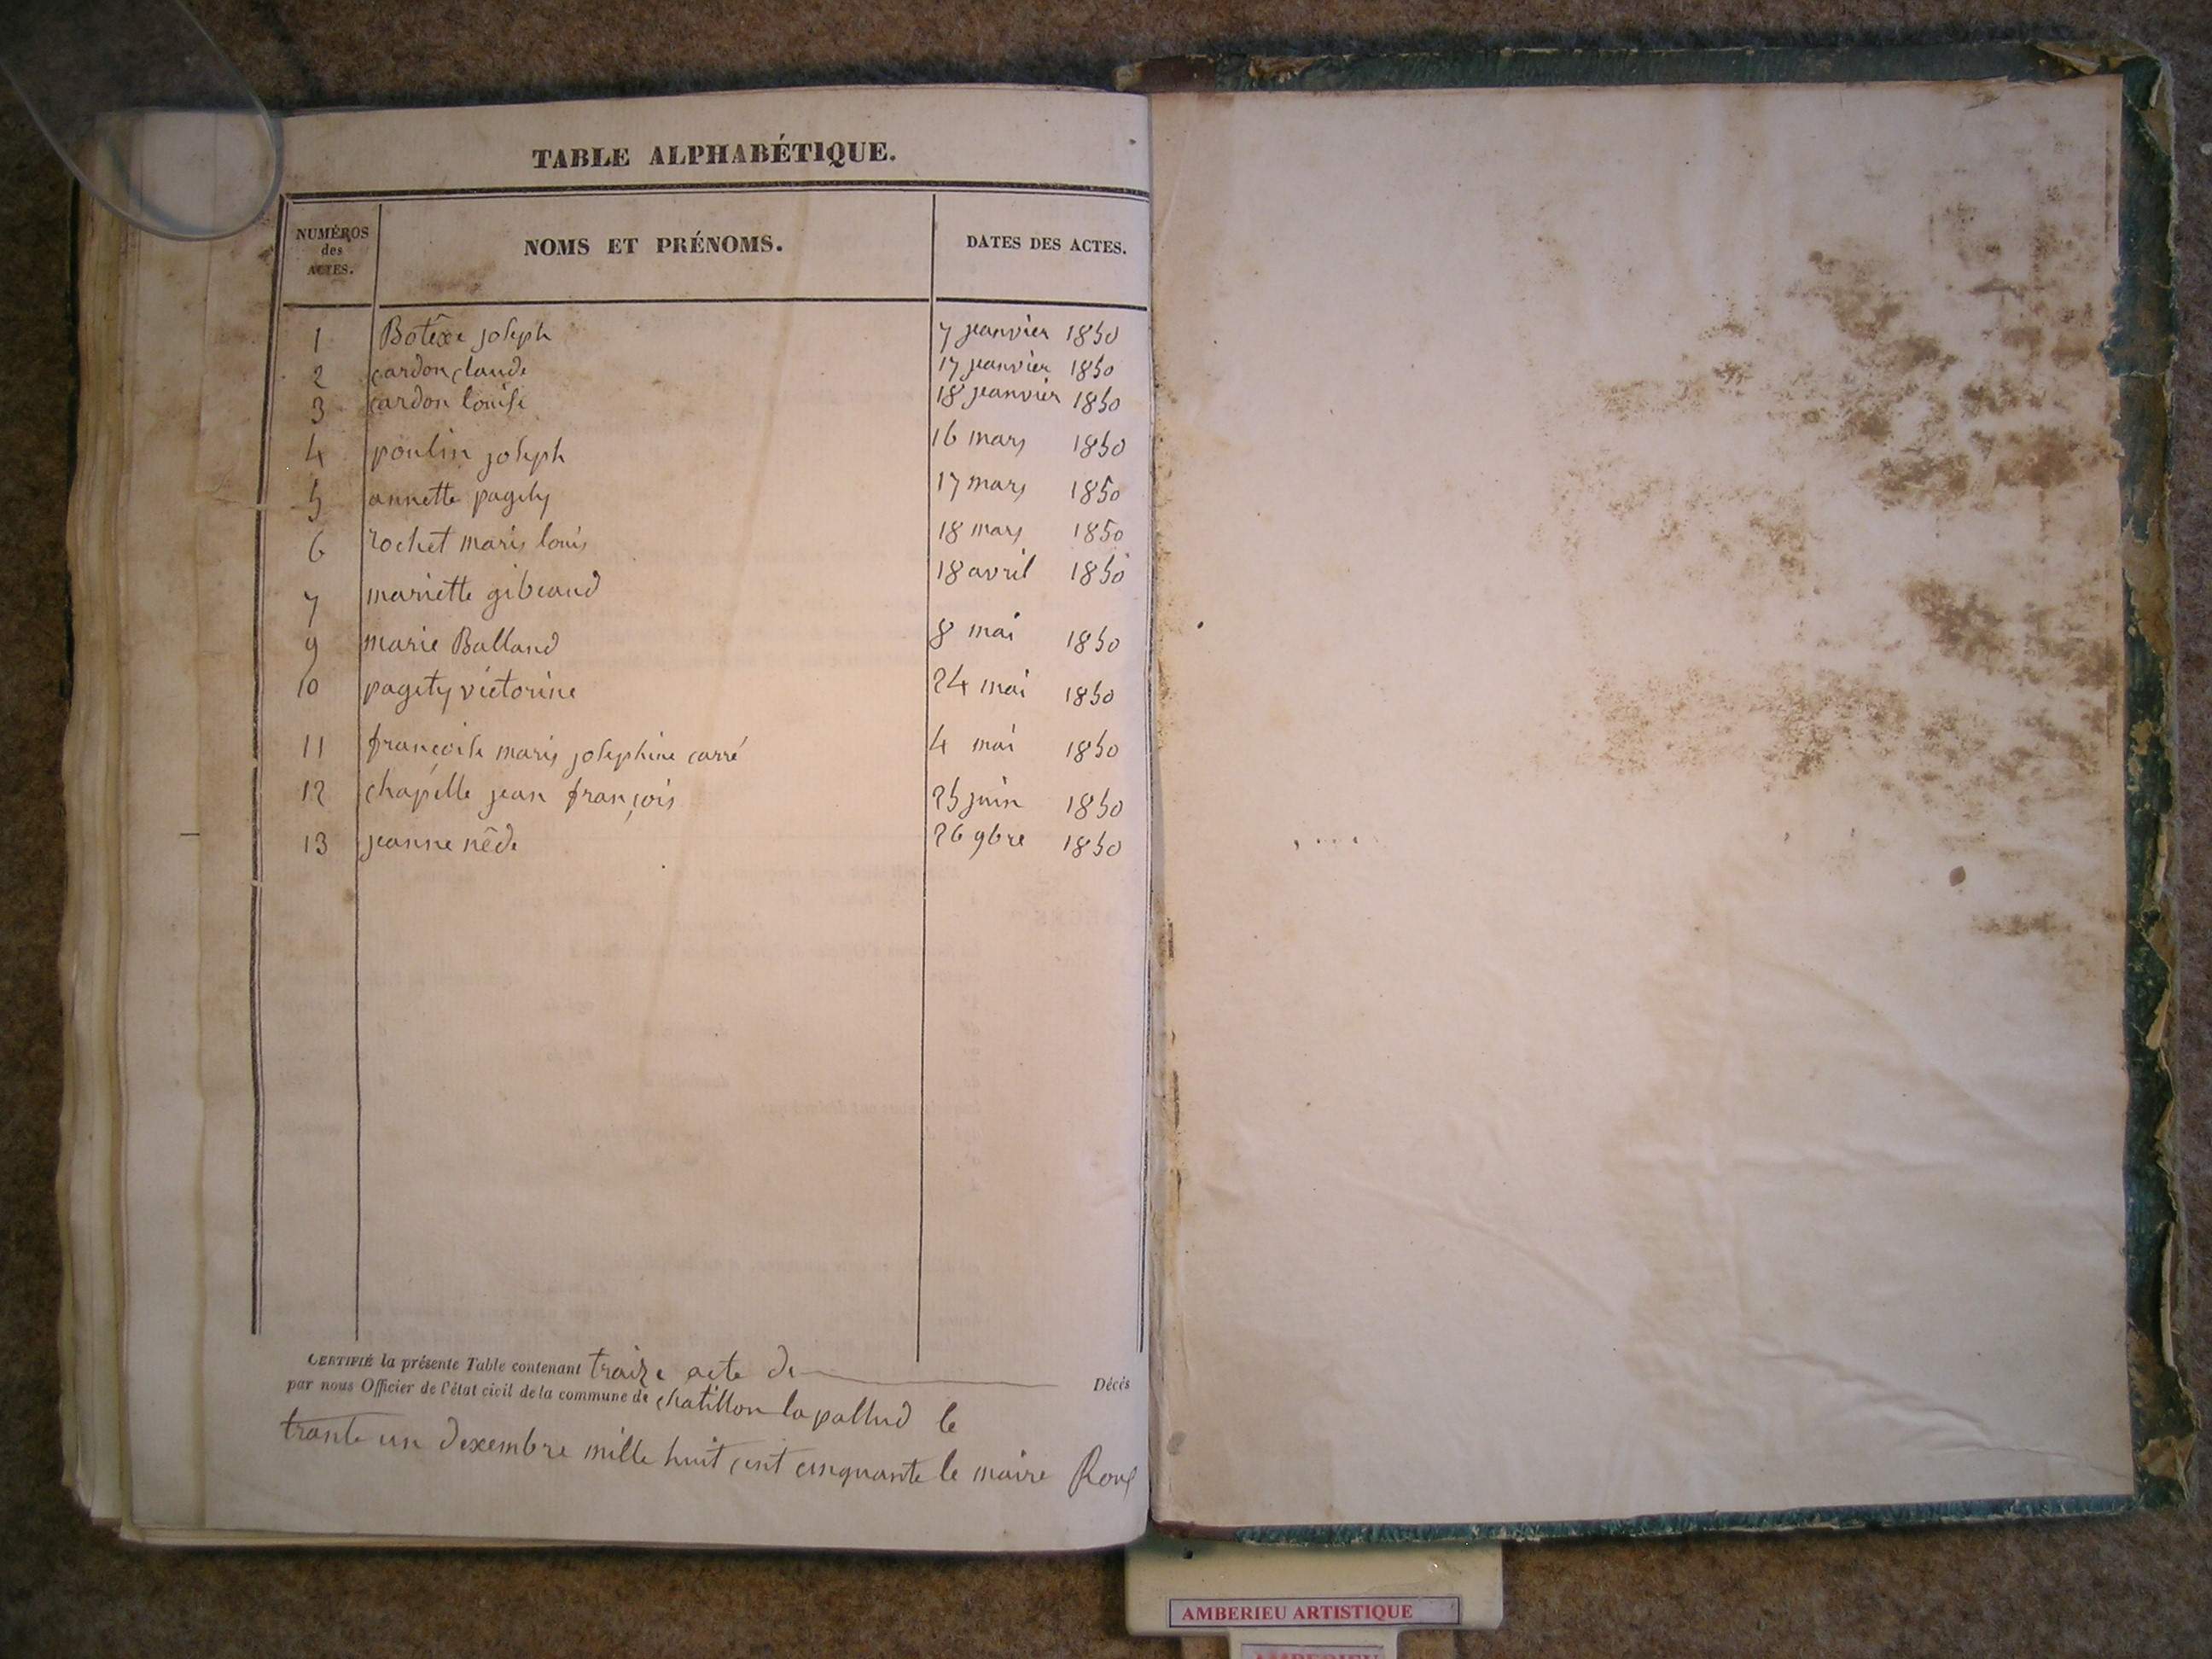 TABLE ALPHABÉTIQUE.
NUMÉROS des ACTES. NOMS ET PRÉNOMS. DATES DES ACTES.
1 joseph 7 jeanvier 1850
2 cardon claude 17 jeanvier 1850
3 cardon louise 18 jeanvier 1850
4 poulin joseph 16 mars 1850
5 annette pagety 17 mars 1850
6 rochet marie louis 18 mars 1850
7 mariette gibeaud 18 avril 1850
9 marie Balland 8 mai 1850
10 pagety victorine 24 mai 1850
11 françoise marie josephine carré 4 mai 1850
12 chapelle jean françois 25 juin 1850
13 jeanne nêde 26 9bre 1850
CERTIFIÉ la présente Table contenant traize acte de Décès
par nous Officier de l'état civil de la commune de chatillon la pallud le
trante un dexembre mille huit cent cinquante le maire
AMBERIEU ARTISTIQUE
AMBERIEU